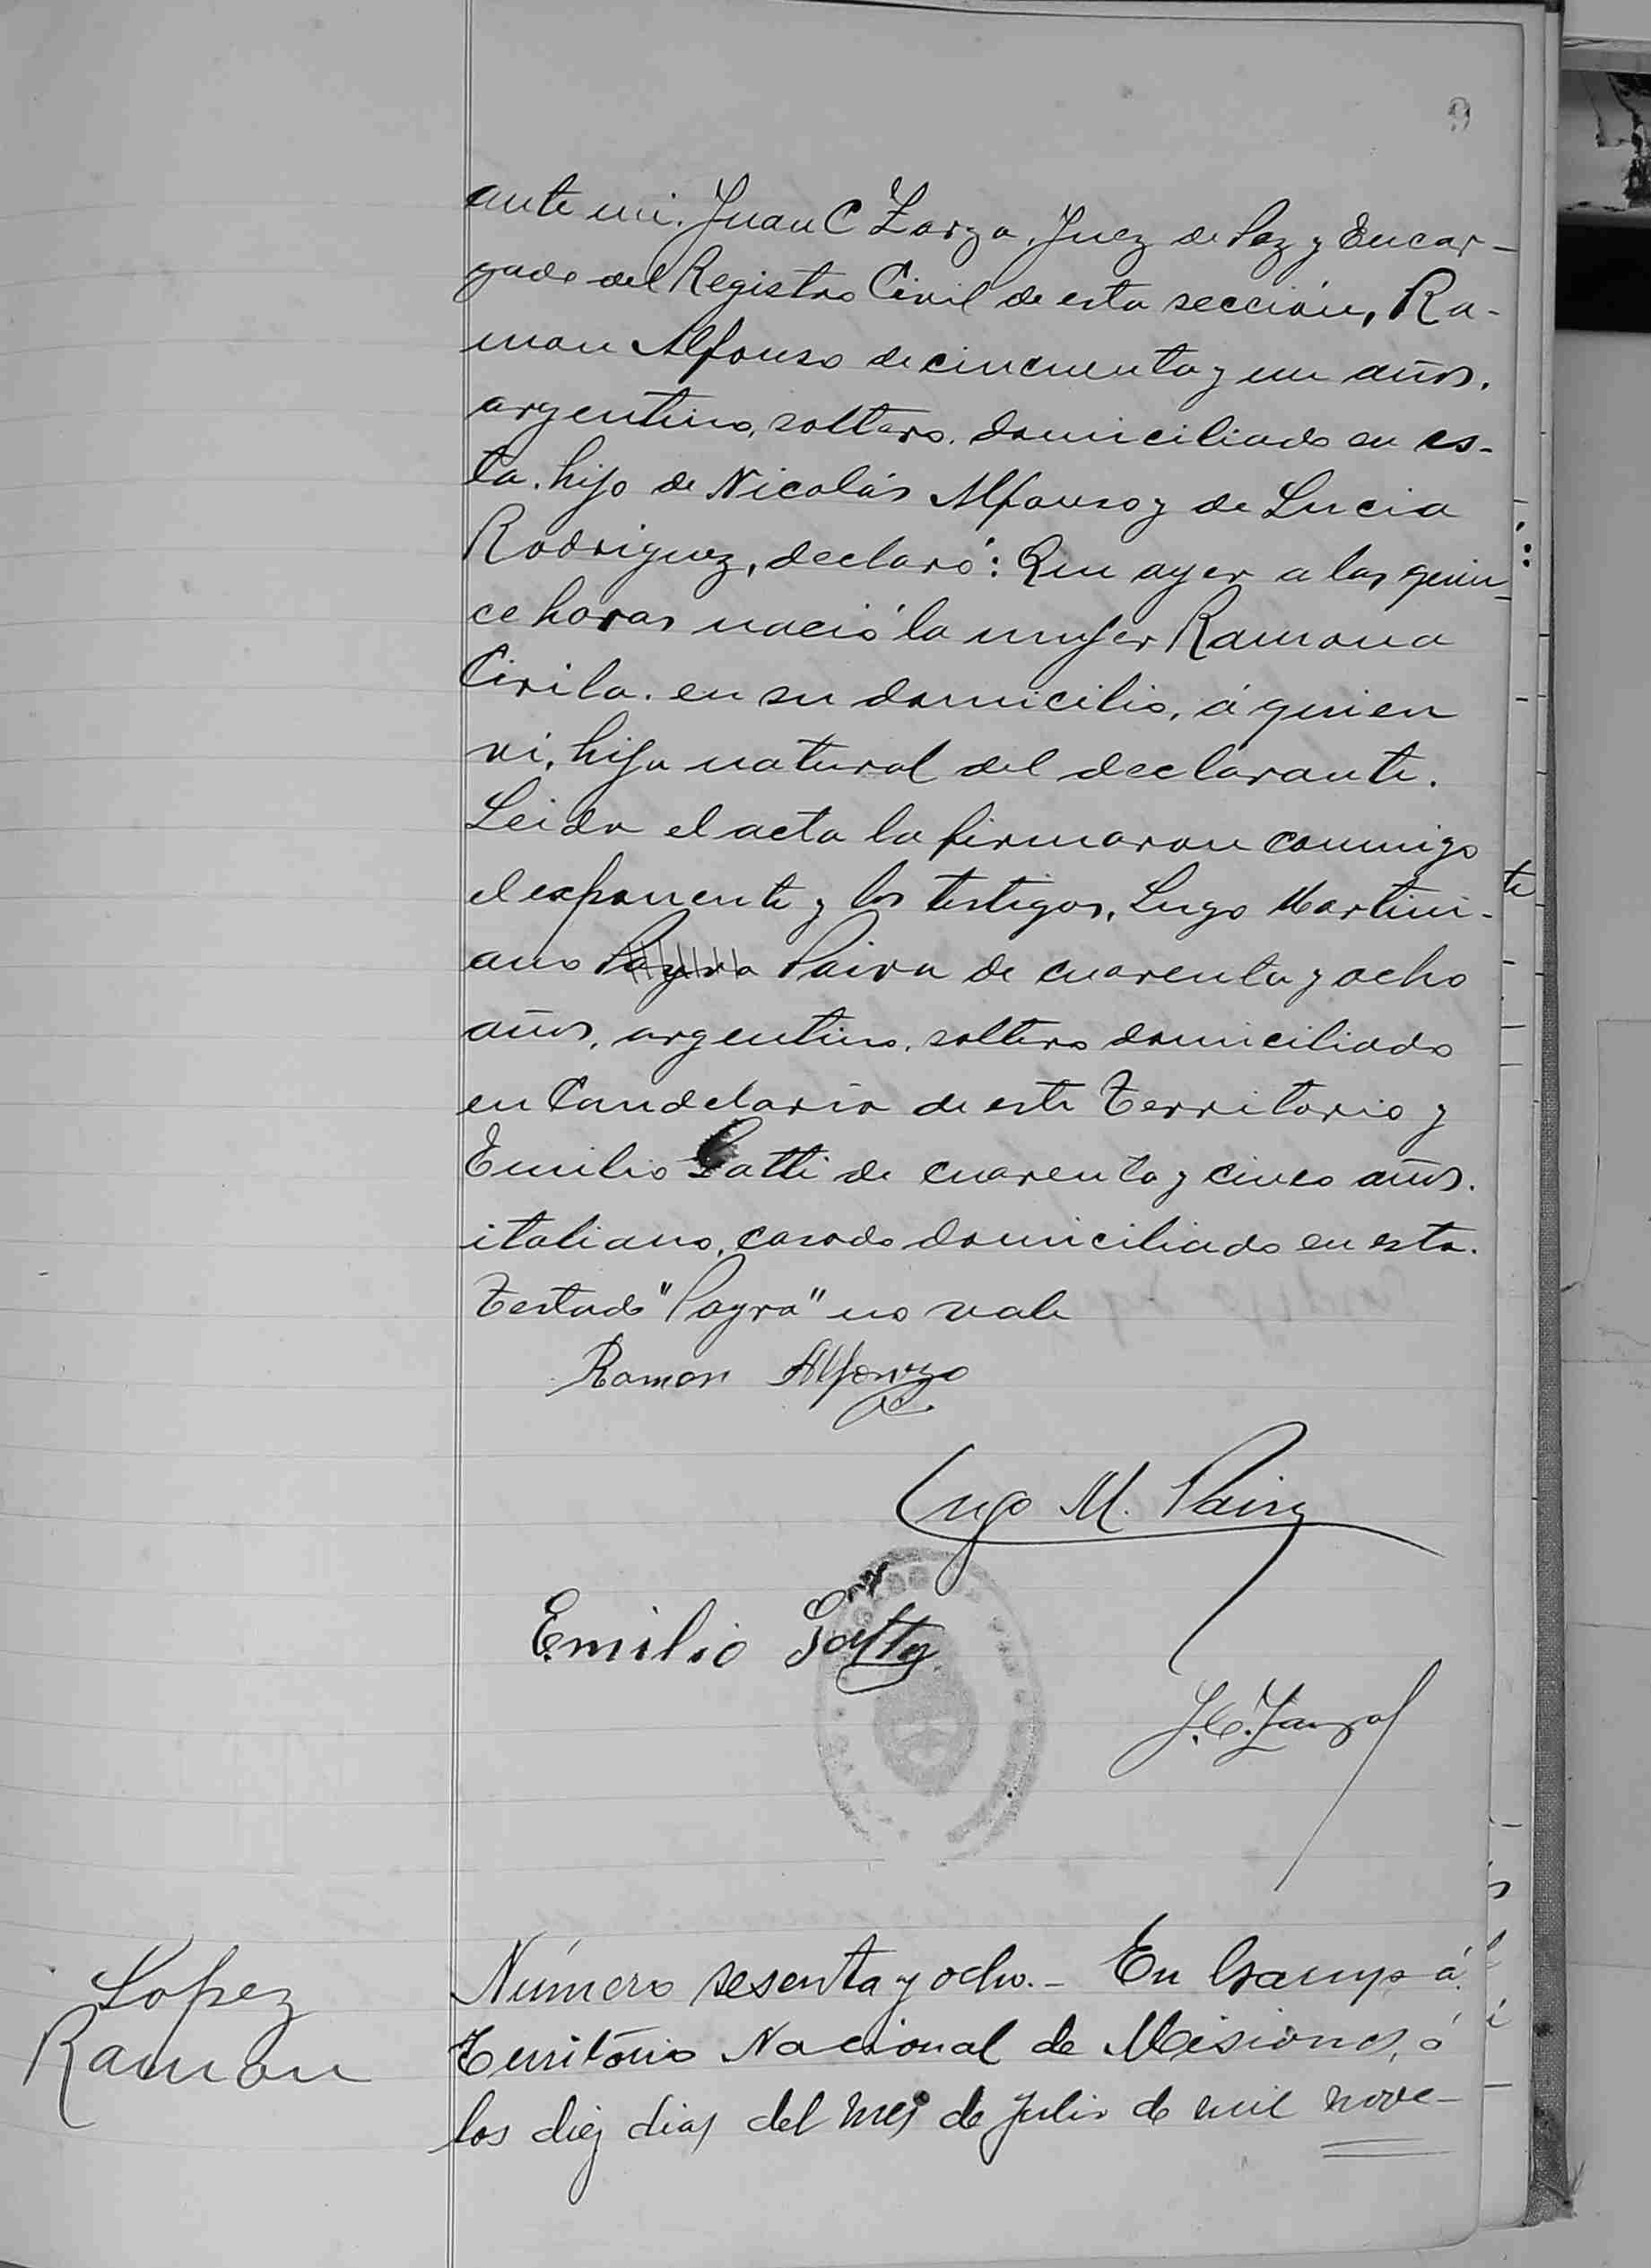 9
ante mi. Juan C Zarza, Juez de Paz y Encar-
gado del Registro Civil de esta sección, Ra-
mon Alfonso de cincuenta y un años,
argentino, soltero, domiciliado en es-
ta, hijo de Nicolás Alfonso y de Lucia
Rodriguez, declaró: Que ayer a las quin-
ce horas nació la mujer Ramona
Cirila. en su domicilio, á quien
vi, hija natural del declarante.
Leida el acta la firmaron conmigo
el exponente y los testigos, Lugo Martini-
ano Payra Paiva de cuarenta y ocho
años, argentino, soltero domiciliado
en Candelaria de este Territorio y
Emilio Gatti de cuarenta y cinco años.
italiano, casado domiciliado en esta.
Testado "Payra" no vale
Ramon Alfonzo
Lugo M. Paiva
Emilio Gatty
J.C. Zarza
Lopez
Ramon
Número sesenta y ocho.- En
Territorio Nacional de Misiones, á
los diez dias del mes de Julio de mil nove-